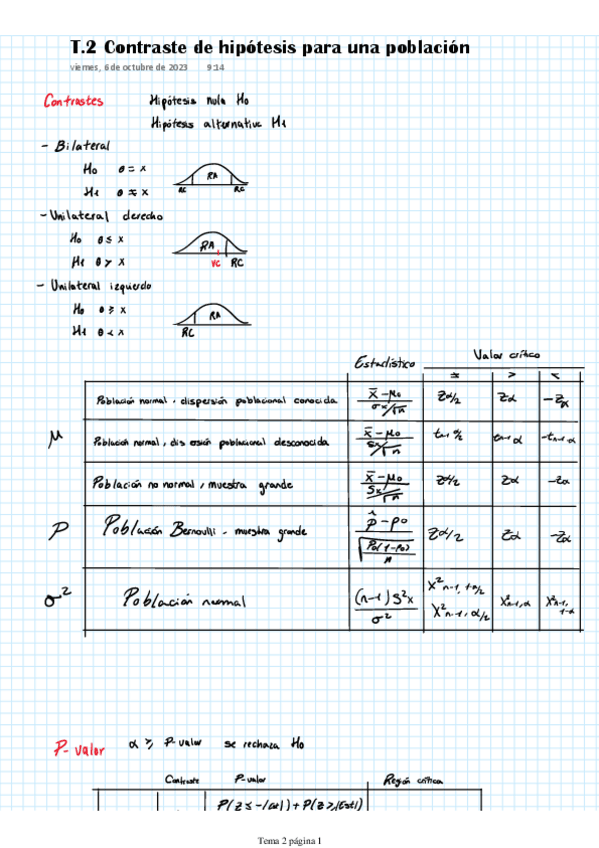 T.2 Contraste de hipótesis para una población
viernes, 6 de octubre de 2023 9:14
Contrastes Hipótesis nula H0
Hipótesis alternativa H1
- Bilateral
H0 θ = x
RA
H1 θ ≠ x
RC RC
- Unilateral derecho
H0 θ ≤ x
RA
H1 θ > x
VC RC
- Unilateral izquierdo
H0 θ ≥ x
RA
H1 θ < x
RC
Estadístico Valor crítico
≠ > <
μ
Población normal, dispersión poblacional conocida x̄ - μ0 / σx/√n zα/2 zα -zα
Población normal, dispersión poblacional desconocida x̄ - μ0 / Sx/√n tn-1 α/2 tn-1 α -tn-1 α
Población no normal, muestra grande x̄ - μ0 / Sx/√n zα/2 zα -zα
P Población Bernoulli - muestra grande p̂ - p0 / √p0(1-p0)/n zα/2 zα -zα
σ² Población normal (n-1) S²x / σ² X²n-1, 1-α/2 X²n-1, α/2 X²n-1, α X²n-1, 1-α
P-valor α ≥ P-valor se rechaza H0
Contraste P-valor Región crítica
P(Z ≤ -|est|) + P(Z ≥ |Est|)
Tema 2 página 1